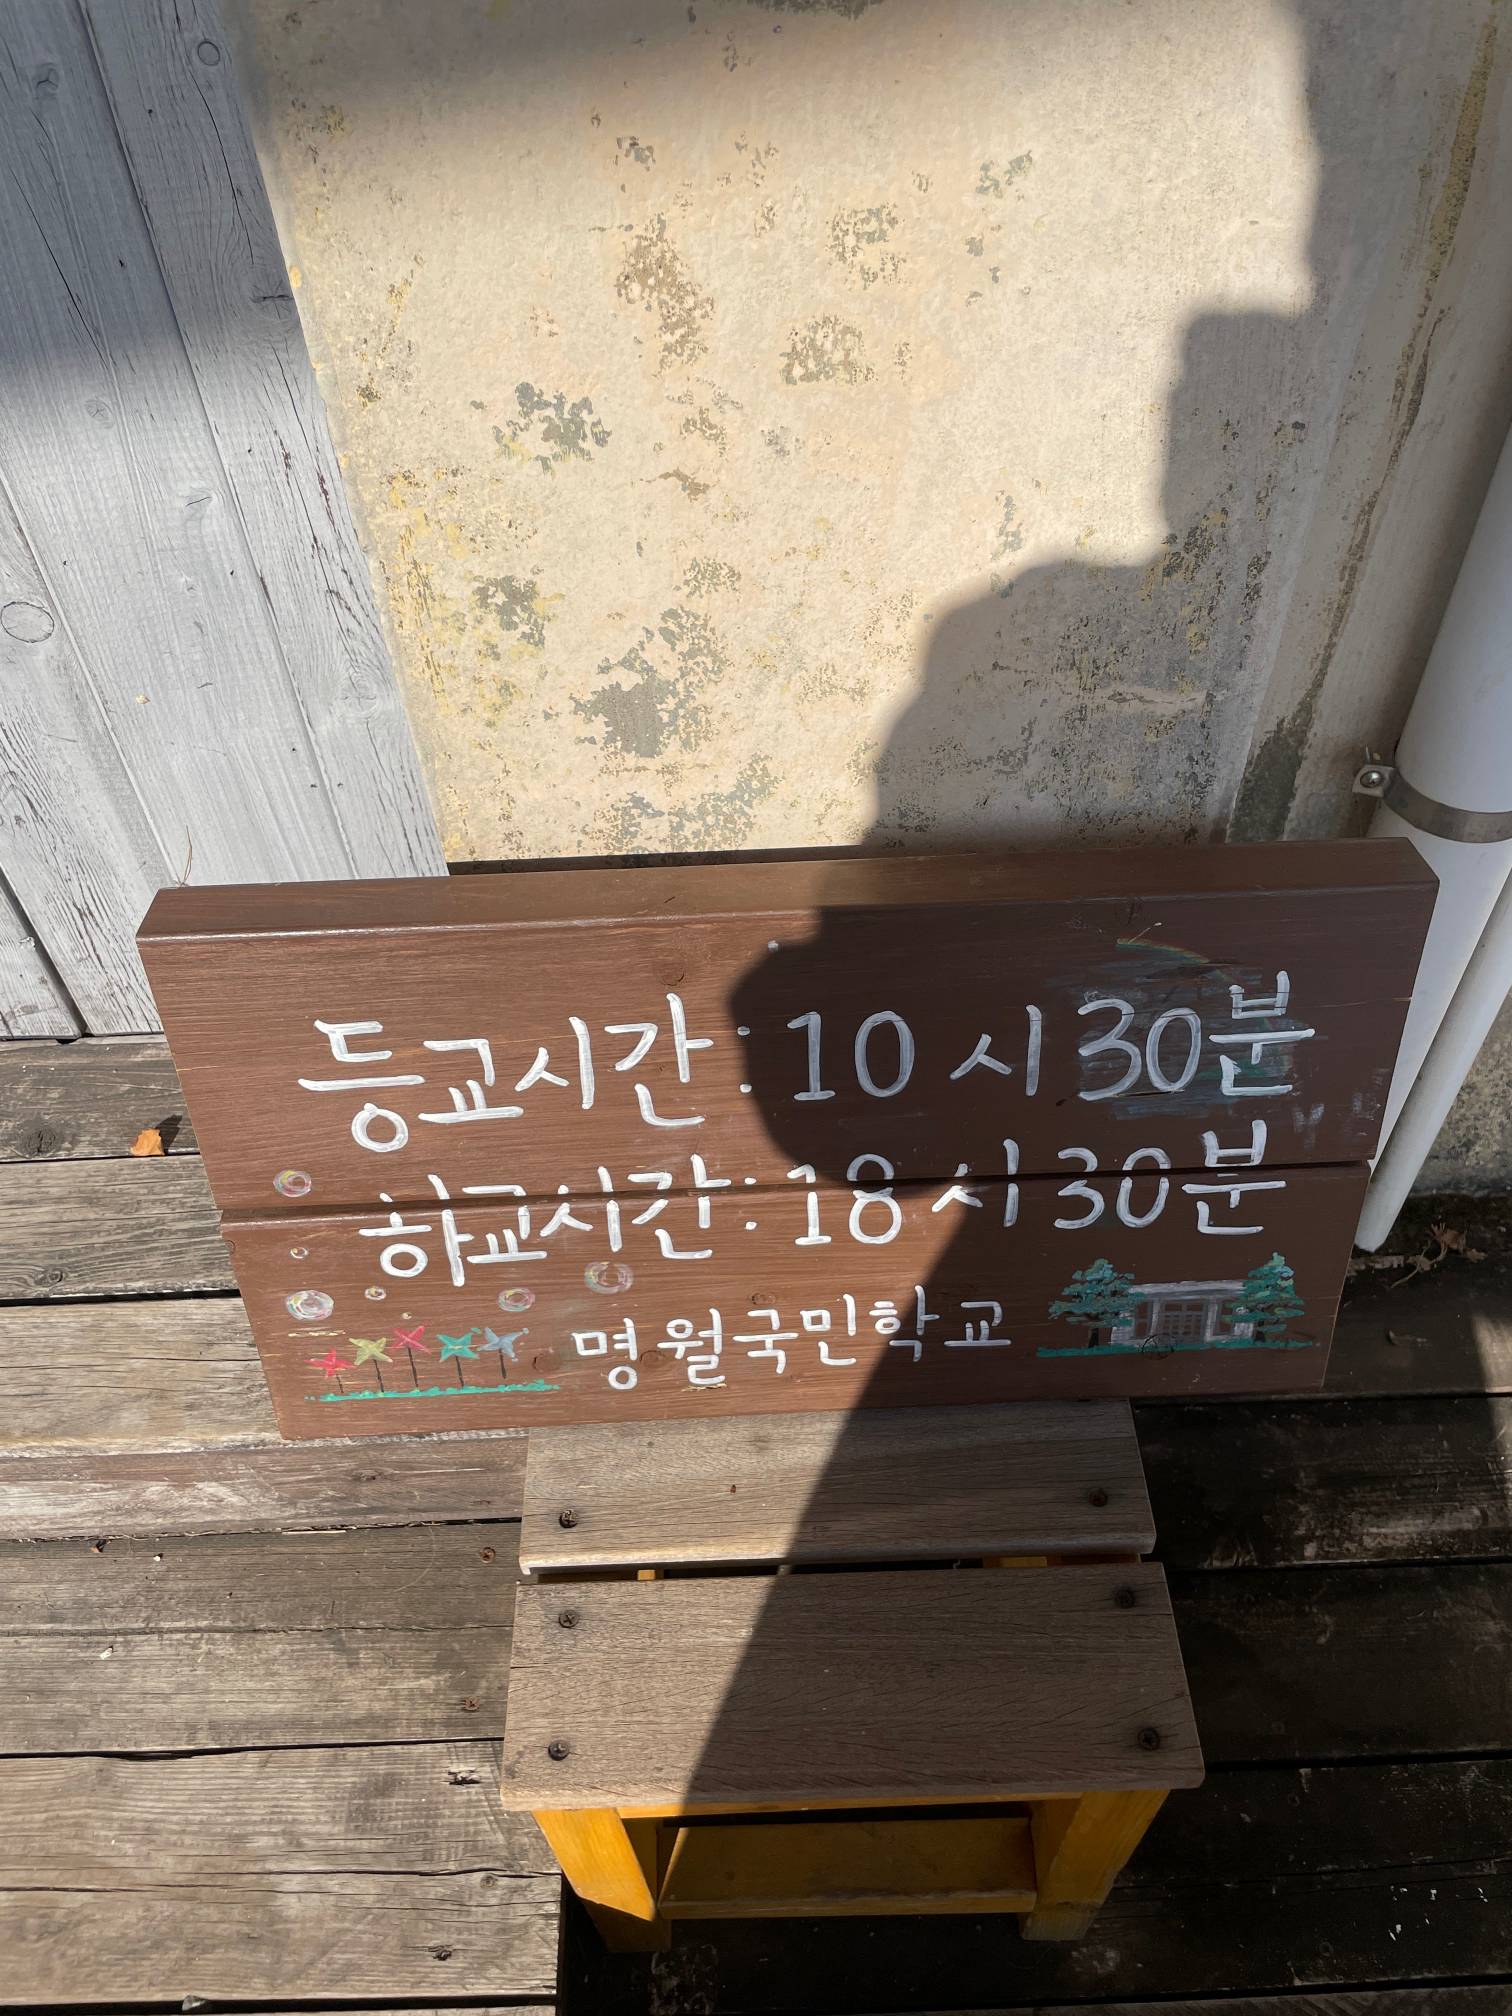 등교시간 : 10시 30분
하교시간 : 18시 30분
명월국민학교